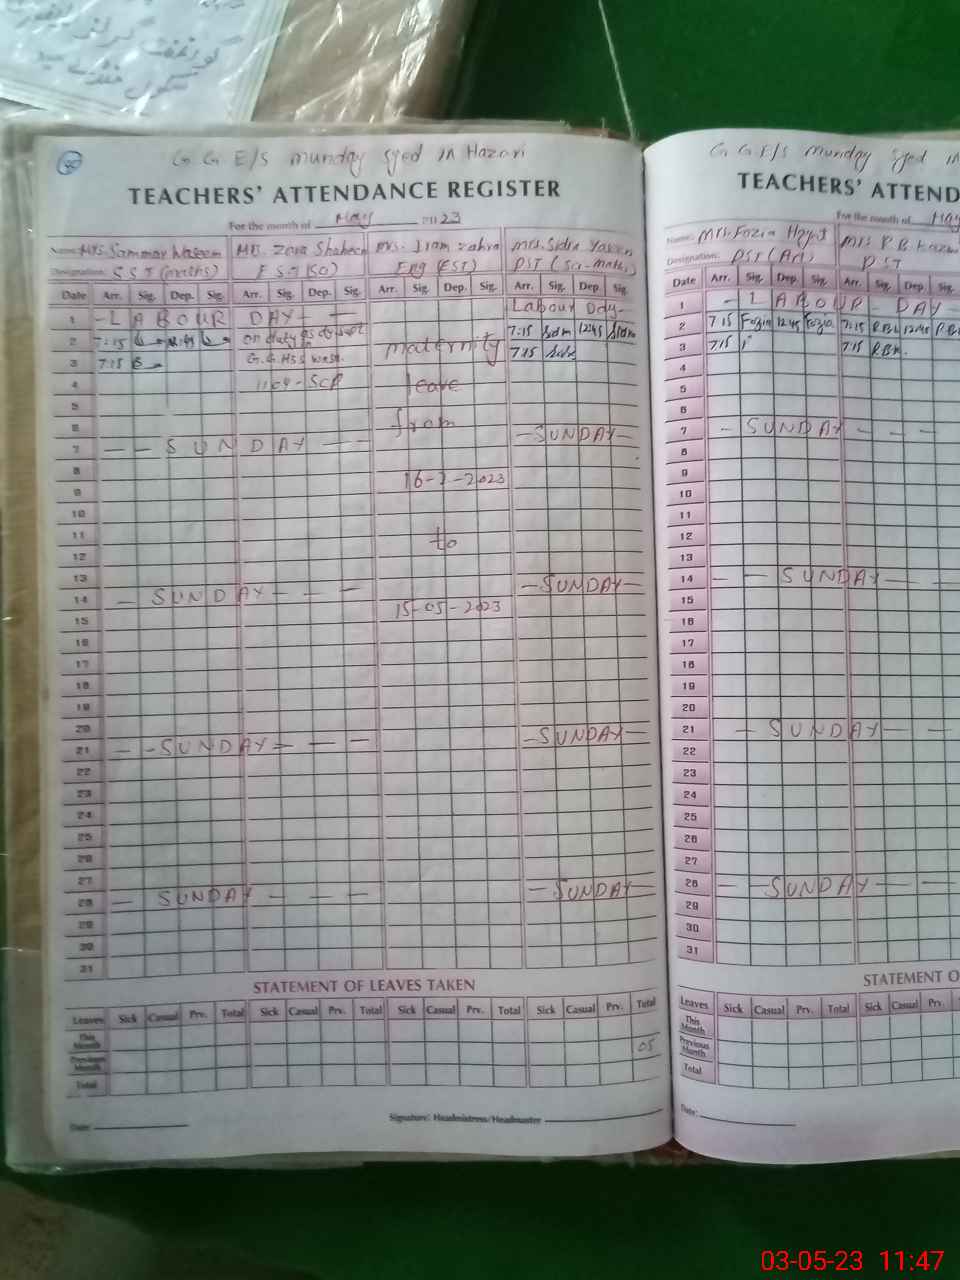 گورنمنٹ گرلز
G G E/S munday syed in Hazari
TEACHERS' ATTENDANCE REGISTER
For the month of May 2023
Name: Mrs. Sammar Waseem Zara Shaheen Mrs. Iram Zahra Mrs. Sidra Yaseen
Designation: SST (maths) ESE (SC) Eng (EST) PST (Sci-math)
Date Arr. Sig. Dep. Sig. Arr. Sig. Dep. Sig. Arr. Sig. Dep. Sig. Arr. Sig. Dep. Sig.
1 - LABOUR DAY - - Labour Day -
2 7:15 12:45 on duty as 7:15 Sidra 12:45 Sidra
3 7:15 G.G.HSS west. maternity 7:15 Sidra
4 1104-SCP leave
5
6 from
7 - - SUNDAY - - - SUNDAY -
8
9 16-2-2023
10
11
12 to
13
14 - SUNDAY - - - - SUNDAY -
15 15-05-2023
16
17
18
19
20
21 - - SUNDAY - - - - SUNDAY -
22
23
24
25
26
27
28 - SUNDAY - - - - SUNDAY -
29
30
31
STATEMENT OF LEAVES TAKEN
Leaves Sick Casual Prv. Total Sick Casual Prv. Total Sick Casual Prv. Total Sick Casual Prv. Total
This Month
Previous Month 05
Total
Date: Signature: Headmistress/Headmaster
G G E/S munday syed in
TEACHERS' ATTEND
For the month of May
Name: Mrs. Fozia Hayat Mrs R.B
Designation: PST (Art) PST
Date Arr. Sig. Dep. Sig. Arr. Sig. Dep. Sig.
1 - LABOUR - DAY -
2 7:15 Fozia 12:45 Fozia 7:15 R.Bn 12:45 R.B
3 7:15 7:15 R.Bn.
4
5
6
7 - SUNDAY - - -
8
9
10
11
12
13
14 - - SUNDAY - -
15
16
17
18
19
20
21 - SUNDAY - -
22
23
24
25
26
27
28 - SUNDAY - - -
29
30
31
STATEMENT O
Leaves Sick Casual Prv. Total Sick Casual Prv.
This Month
Previous Month
Total
Date:
03-05-23 11:47